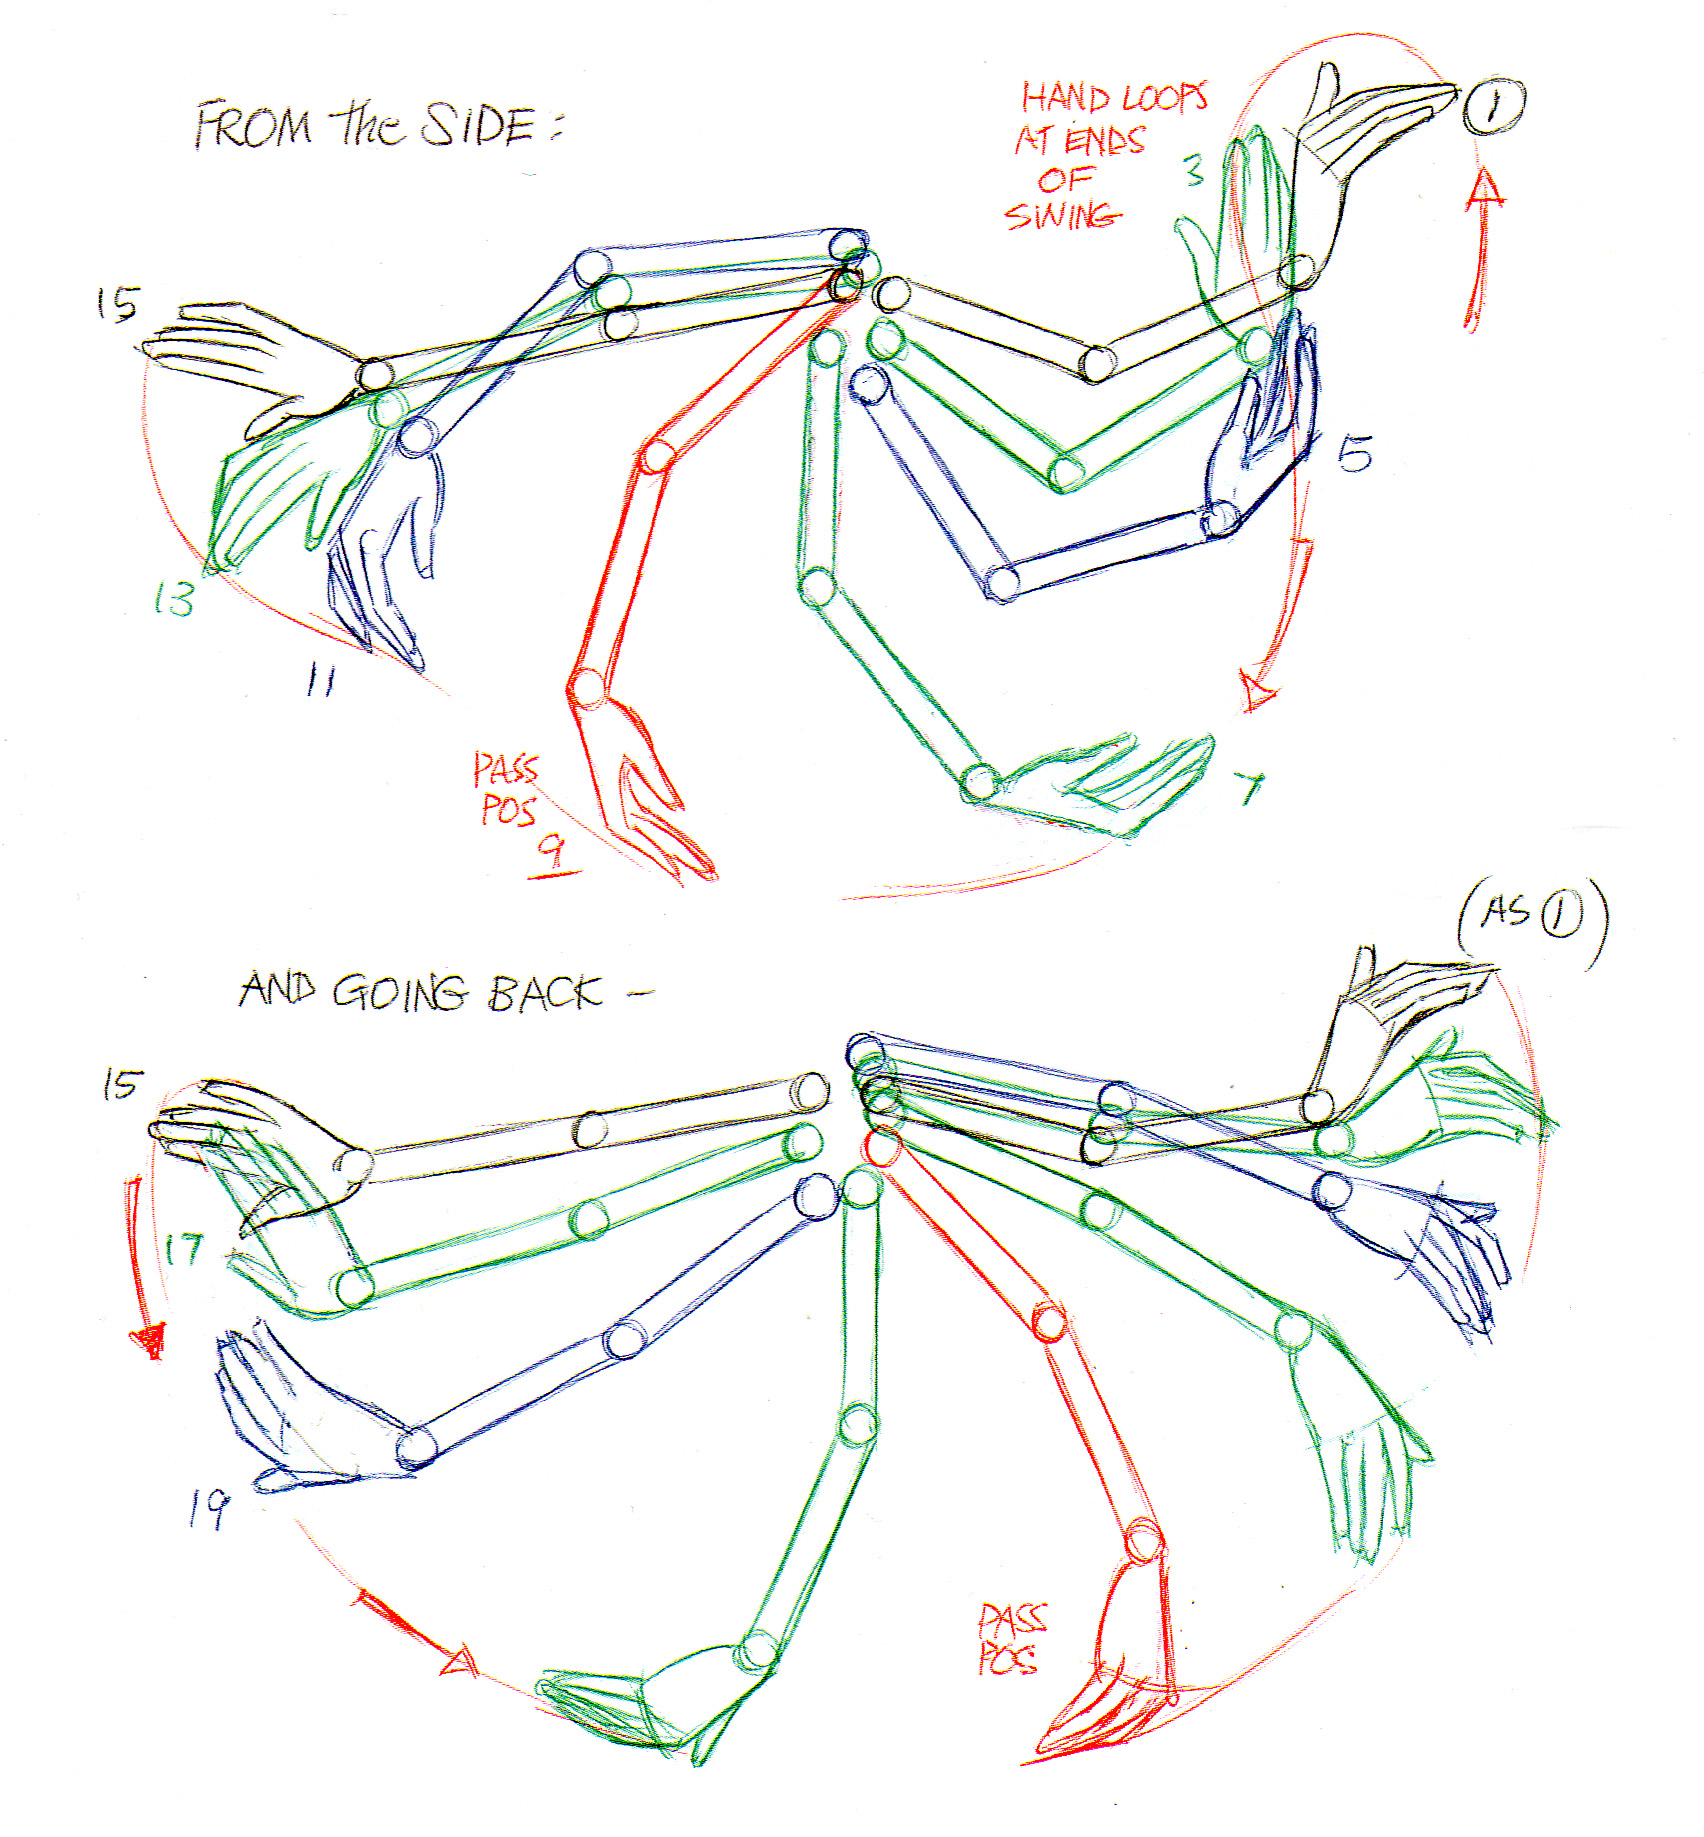 FROM the SIDE:
HAND LOOPS
AT ENDS
OF
SWING
1
3
15
5
13
11
7
PASS
POS
9
(AS 1)
AND GOING BACK -
15
17
19
PASS
POS